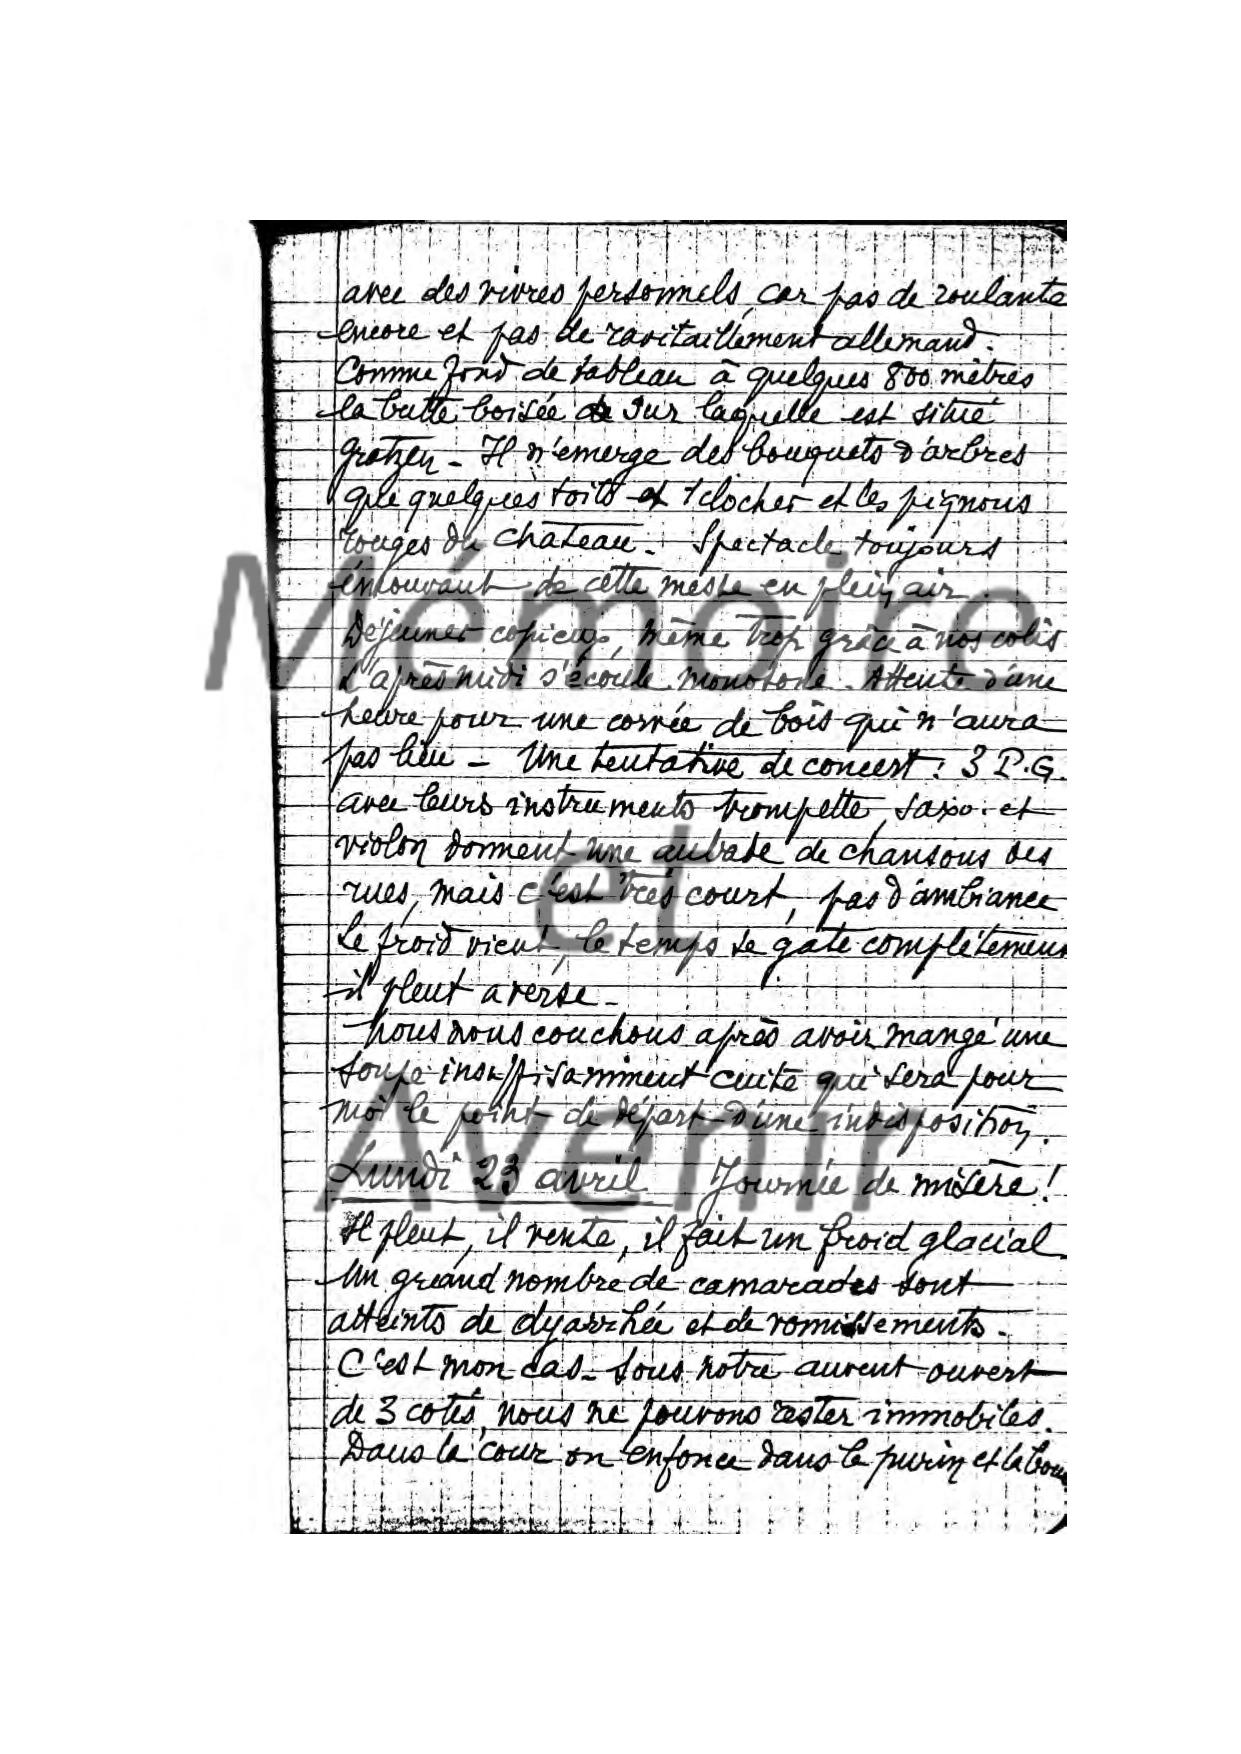 avec des vivres personnels, car pas de roulante
encore et pas de ravitaillement allemand.
Comme fond de tableau à quelques 800 mètres
la butte boisée de sur laquelle est situé
Gratzen - Il n'émerge des bouquets d'arbres
que quelques toits et 1 clocher et les pignons
rouges du chateau. Spectacle toujours
émouvant de cette messe en plein air.
Déjeuner copieux, même trop grâce à nos colis
L'après midi s'écoule monotone. Attente d'une
heure pour une corvée de bois qui n'aura
pas lieu - Une tentative de concert : 3 P.G.
avec leurs instruments trompette, saxo. et
violon donnent une aubade de chansons des
rues, mais c'est très court, pas d'ambiance
Le froid vient, le temps se gate complètement
il pleut averse -
Nous nous couchons après avoir mangé une
soupe insuffisamment cuite qui sera pour
moi le point de départ d'une indisposition.
Lundi 23 avril Journée de misère !
Il pleut, il vente, il fait un froid glacial
Un grand nombre de camarades sont
atteints de dyarrhée et de vomissements.
C'est mon cas - Sous notre auvent ouvert
de 3 cotés, nous ne pouvons rester immobiles.
Dans la cour on enfonce dans le purin et la boue
Mémoire
et
Avenir